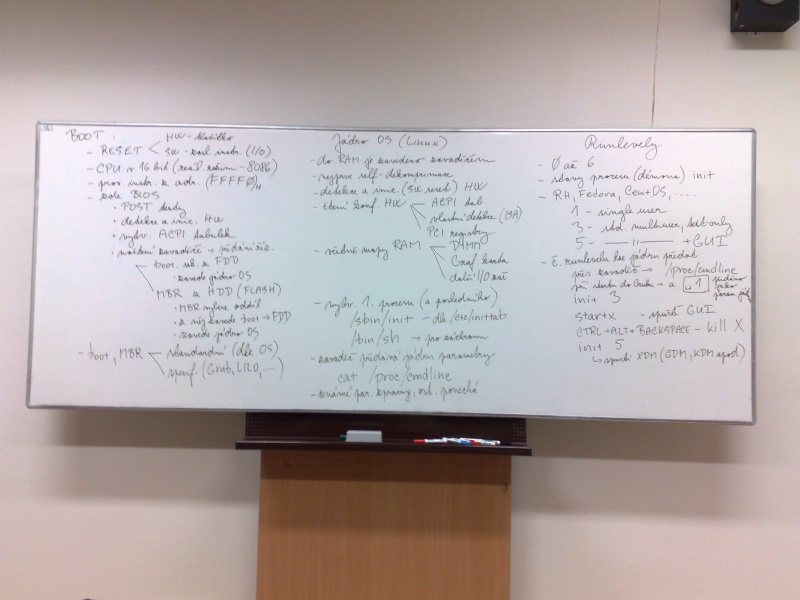 BOOT:
HW - tlačítko
- RESET < SW - spec. instr. (I/O)
- CPU v 16 bit (reál. režim - 8086)
- prov. instr. z adr. (FFFF0)H
- kode BIOS
• POST testy
• detekce a inic. HW
• vytvr. ACPI tabulek
• nalezení zavaděče + předání říz.
boot. sk. z FDD
• zavede jádro OS
MBR z HDD (FLASH)
• MBR vybere oddíl
• z něj zavede boot → FDD
• zavede jádro OS
- boot, MBR
standardní (dle OS)
specif. (Grub, LILO, ....)
Jádro OS (Linux)
- do RAM je zavedeno zavaděčem
- nejprve self-dekomprimace
- detekce a inic. (SW reset) HW
- čtení konf. HW
ACPI tab
vlastní detekce (ISA)
PCI registry
- včetně mapy RAM
DIMM
Graf. karta
další I/O zař
- vytvr. 1. procesu (a posledního)
/sbin/init - dle /etc/inittab
/bin/sh → pro záchranu
- zavaděč předává jádru parametry
cat /proc/cmdline
- známé par. zpracuje, ost. ponechá
Runlevely
- 0 až 6
- stavy procesu (démona) init
- RH, Fedora, CentOS, ....
1 - single user
3 - std. multiuser, text only
5 - —— || —— + GUI
- č. runlevelu lze jádru předat
přes zavaděč → /proc/cmdline
při startu do Grubu → a ␣1
předáno jako param.
init 3
startx - spustí GUI
CTRL+ALT+BACKSPACE - kill X
init 5
↳ spustí XDM (GDM, KDM apod)